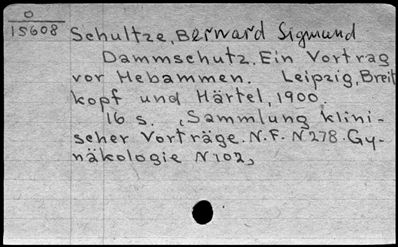 O
15608
Schultze, Bernard Sigmund
Dammschutz. Ein Vortrag
vor Hebammen. Leipzig, Breit
kopf und Härtel, 1900.
16 s. „Sammlung klini-
scher Vorträge. N.F. N278. Gy-
näkologie N102„